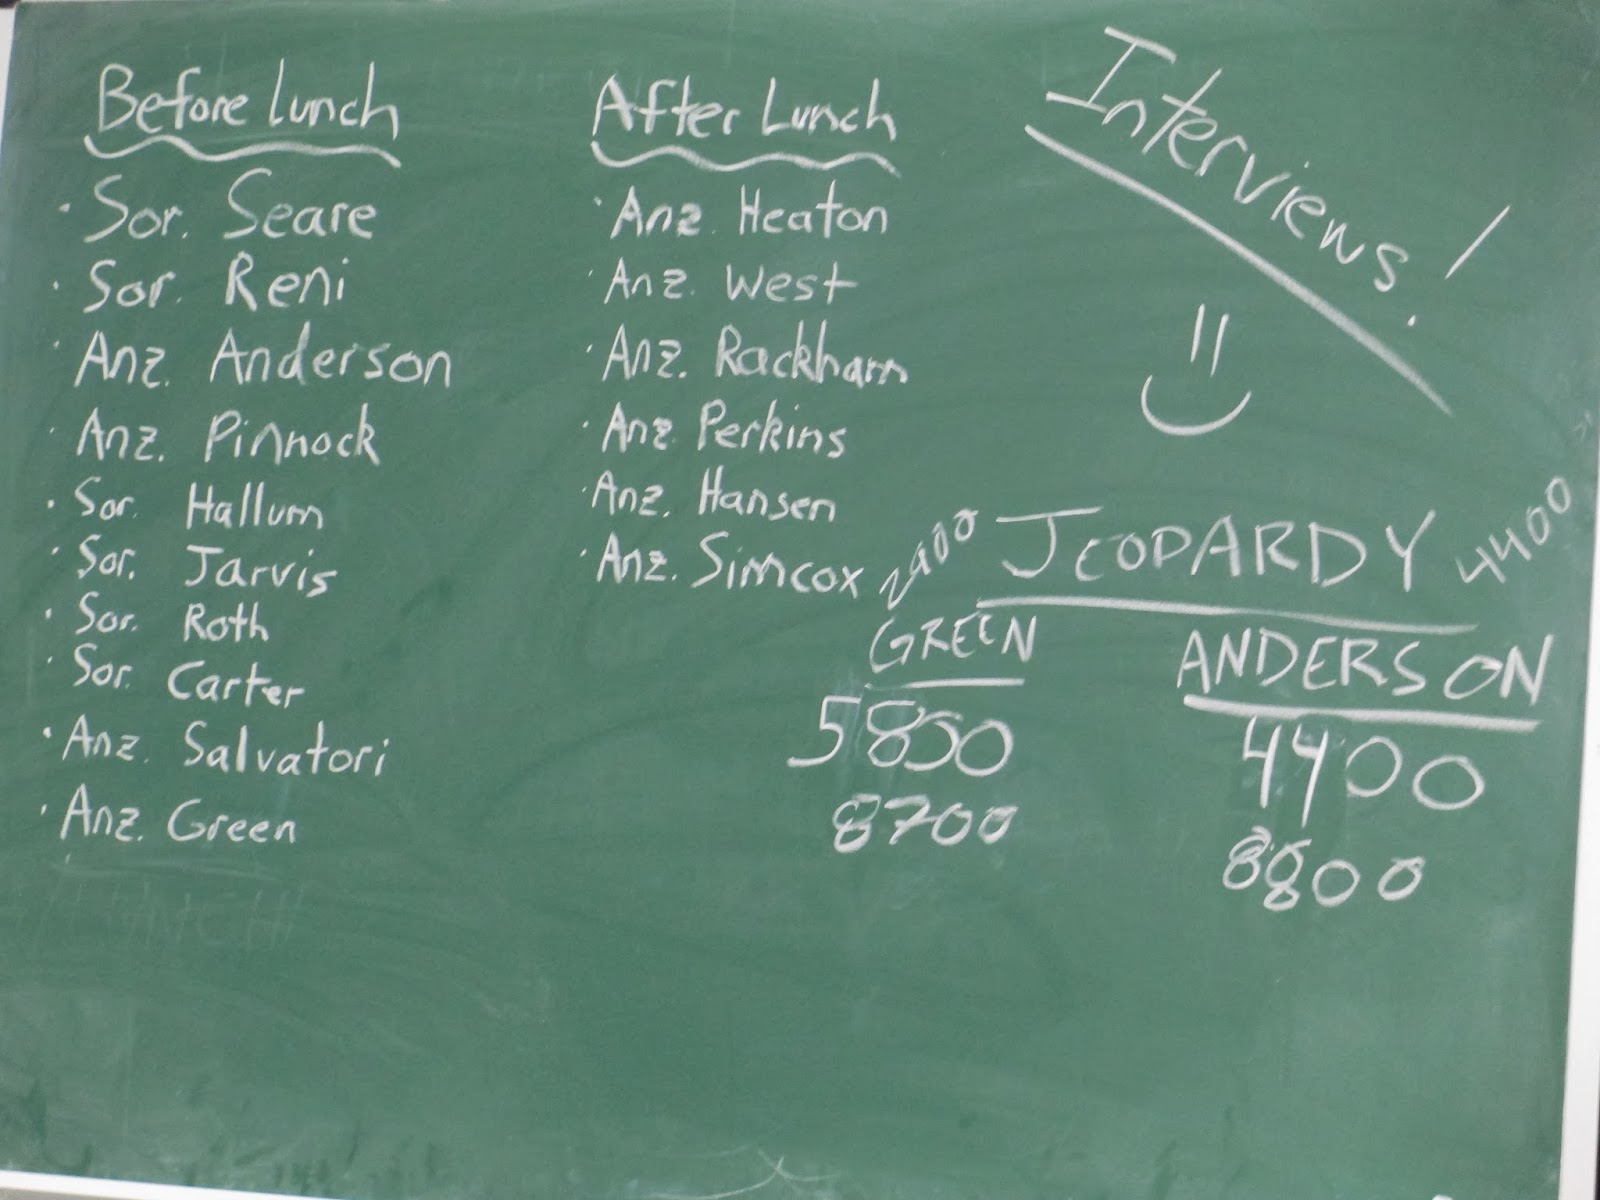 Before Lunch
· Sor. Seare
· Sor. Reni
· Anz. Anderson
· Anz. Pinnock
· Sor. Hallum
· Sor. Jarvis
· Sor. Roth
· Sor. Carter
· Anz. Salvatori
· Anz. Green
After Lunch
· Anz. Heaton
· Anz. West
· Anz. Rackham
· Anz. Perkins
· Anz. Hansen
· Anz. Simcox
Interviews!
JEOPARDY
4400
GREEN
5800
8700
ANDERSON
4400
8800